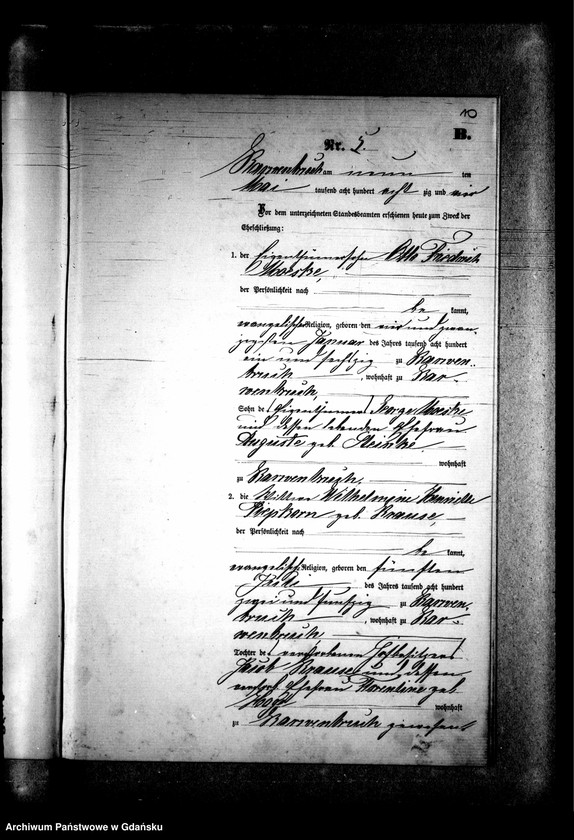 10
B.
Nr. 5.
Karwenbruch am neun ten
Mai tausend acht hundert acht zig und vier
Vor dem unterzeichneten Standesbeamten erschienen heute zum Zweck der
Eheschließung:
1. der Eigenthümersohn Otto Friedrich
der Persönlichkeit nach
be kannt,
evangelischer Religion, geboren den vier und zwan-
zigsten Januar des Jahres tausend acht hundert
ein und sechszig zu Karwen-
bruch, wohnhaft zu Kar-
wenbruch,
Sohn des Eigenthümers George
und dessen lebenden Ehefrau
Auguste geb.
wohnhaft
zu Karwenbruch.
2. die Wittwe Wilhelmine Henriette
Piepkorn geb. Krause,
der Persönlichkeit nach
be kannt,
evangelischer Religion, geboren den fünften
des Jahres tausend acht hundert
zwei und fünfzig zu Karwen-
bruch, wohnhaft zu Kar-
wenbruch
Tochter des verstorbenen Hofbesitzers
Jacob Krause und dessen
verstorb. Ehefrau Florentine geb.
wohnhaft
zu Karwenbruch gewesen
Archiwum Państwowe w Gdańsku